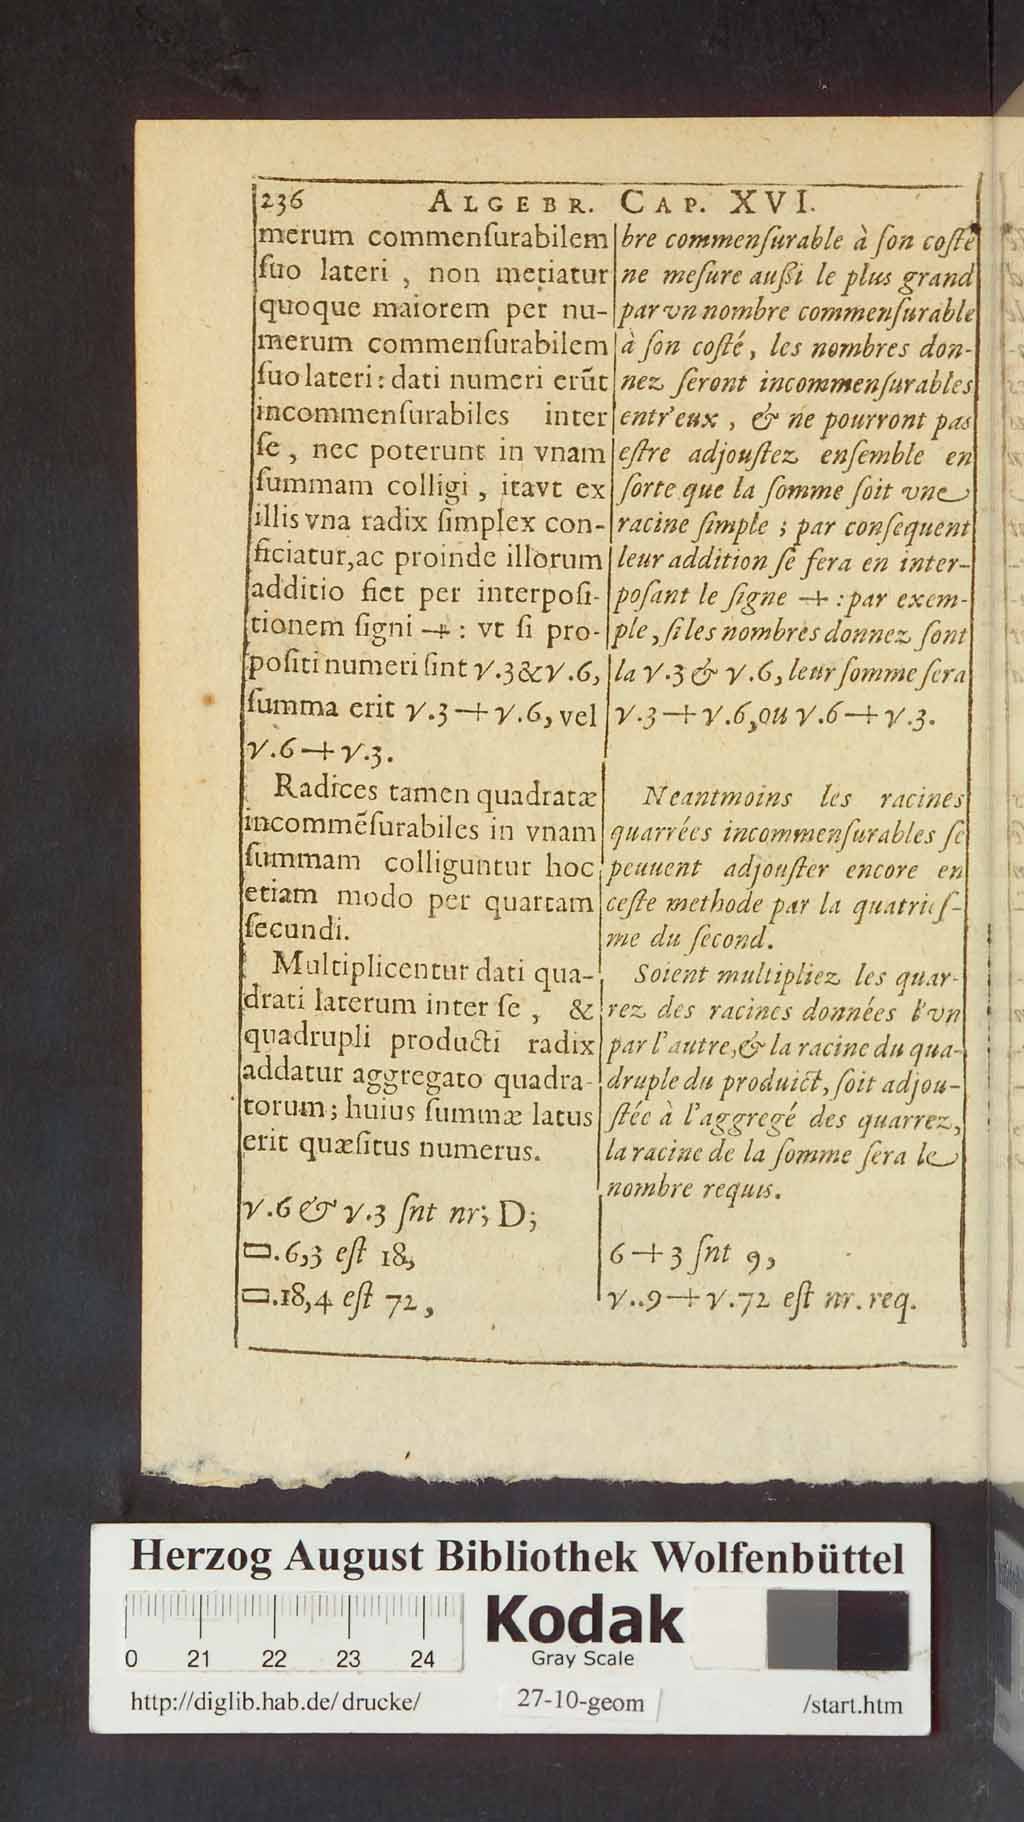 236 ALGEBR. CAP. XVI.
merum commenſurabilem
ſuo lateri , non metiatur
quoque maiorem per nu-
merum commenſurabilem
ſuo lateri : dati numeri erũt
incommenſurabiles inter
ſe , nec poterunt in vnam
ſummam colligi , itavt ex
illis vna radix ſimplex con-
ficiatur, ac proinde illorum
additio fiet per interpoſi-
tionem ſigni -+ : vt ſi pro-
poſiti numeri ſint √.3 & √.6,
ſumma erit √.3 -+ √.6, vel
√.6 -+ √.3.
Radices tamen quadratæ
incommẽſurabiles in vnam
ſummam colliguntur hoc
etiam modo per quartam
ſecundi.
Multiplicentur dati qua-
drati laterum inter ſe , &
quadrupli producti radix
addatur aggregato quadra-
torum ; huius ſummæ latus
erit quæſitus numerus.
√.6 & √.3 ſnt nr; D;
▭.6,3 eſt 18,
▭.18,4 eſt 72,
bre commenſurable à ſon coſté
ne meſure außi le plus grand
par vn nombre commenſurable
à ſon coſté, les nombres don-
nez ſeront incommenſurables
entr'eux , & ne pourront pas
eſtre adjouſtez enſemble en
ſorte que la ſomme ſoit vne
racine ſimple ; par conſequent
leur addition ſe fera en inter-
poſant le ſigne -+ : par exem-
ple, ſi les nombres donnez ſont
la √.3 & √.6, leur ſomme ſera
√.3 -+ √.6, ou √.6 -+ √.3.
Neantmoins les racines
quarrées incommenſurables ſe
peuuent adjouſter encore en
ceſte methode par la quatrieſ-
me du ſecond.
Soient multipliez les quar-
rez des racines données l'vn
par l'autre, & la racine du qua-
druple du produict, ſoit adjou-
ſtée à l'aggregé des quarrez,
la racine de la ſomme ſera le
nombre requis.
6 -+ 3 ſnt 9,
√..9 -+ √.72 eſt nr. req.
Herzog August Bibliothek Wolfenbüttel
0 21 22 23 24
Kodak
Gray Scale
http://diglib.hab.de/drucke/ 27-10-geom /start.htm